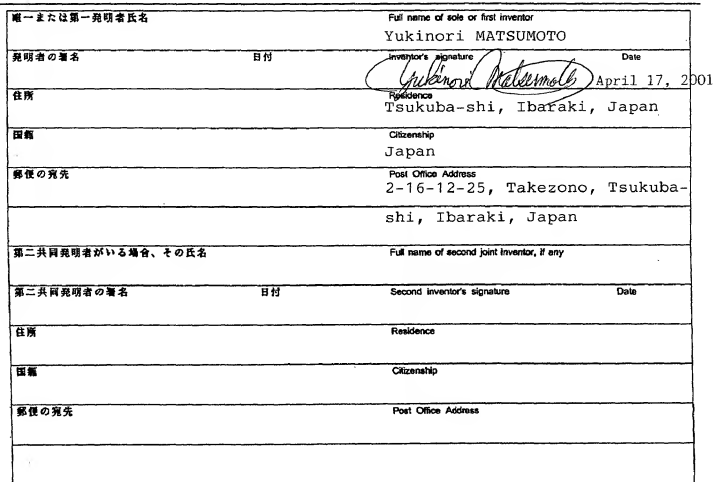 唯一または第一発明者氏名 Full name of sole or first inventor
Yukinori MATSUMOTO
発明者の署名 日付 Inventor's signature Date
Yukinori Matsumoto April 17, 2001
住所 Residence
Tsukuba-shi, Ibaraki, Japan
国籍 Citizenship
Japan
郵便の宛先 Post Office Address
2-16-12-25, Takezono, Tsukuba-
shi, Ibaraki, Japan
第二共同発明者がいる場合、その氏名 Full name of second joint inventor, if any
第二共同発明者の署名 日付 Second inventor's signature Date
住所 Residence
国籍 Citizenship
郵便の宛先 Post Office Address